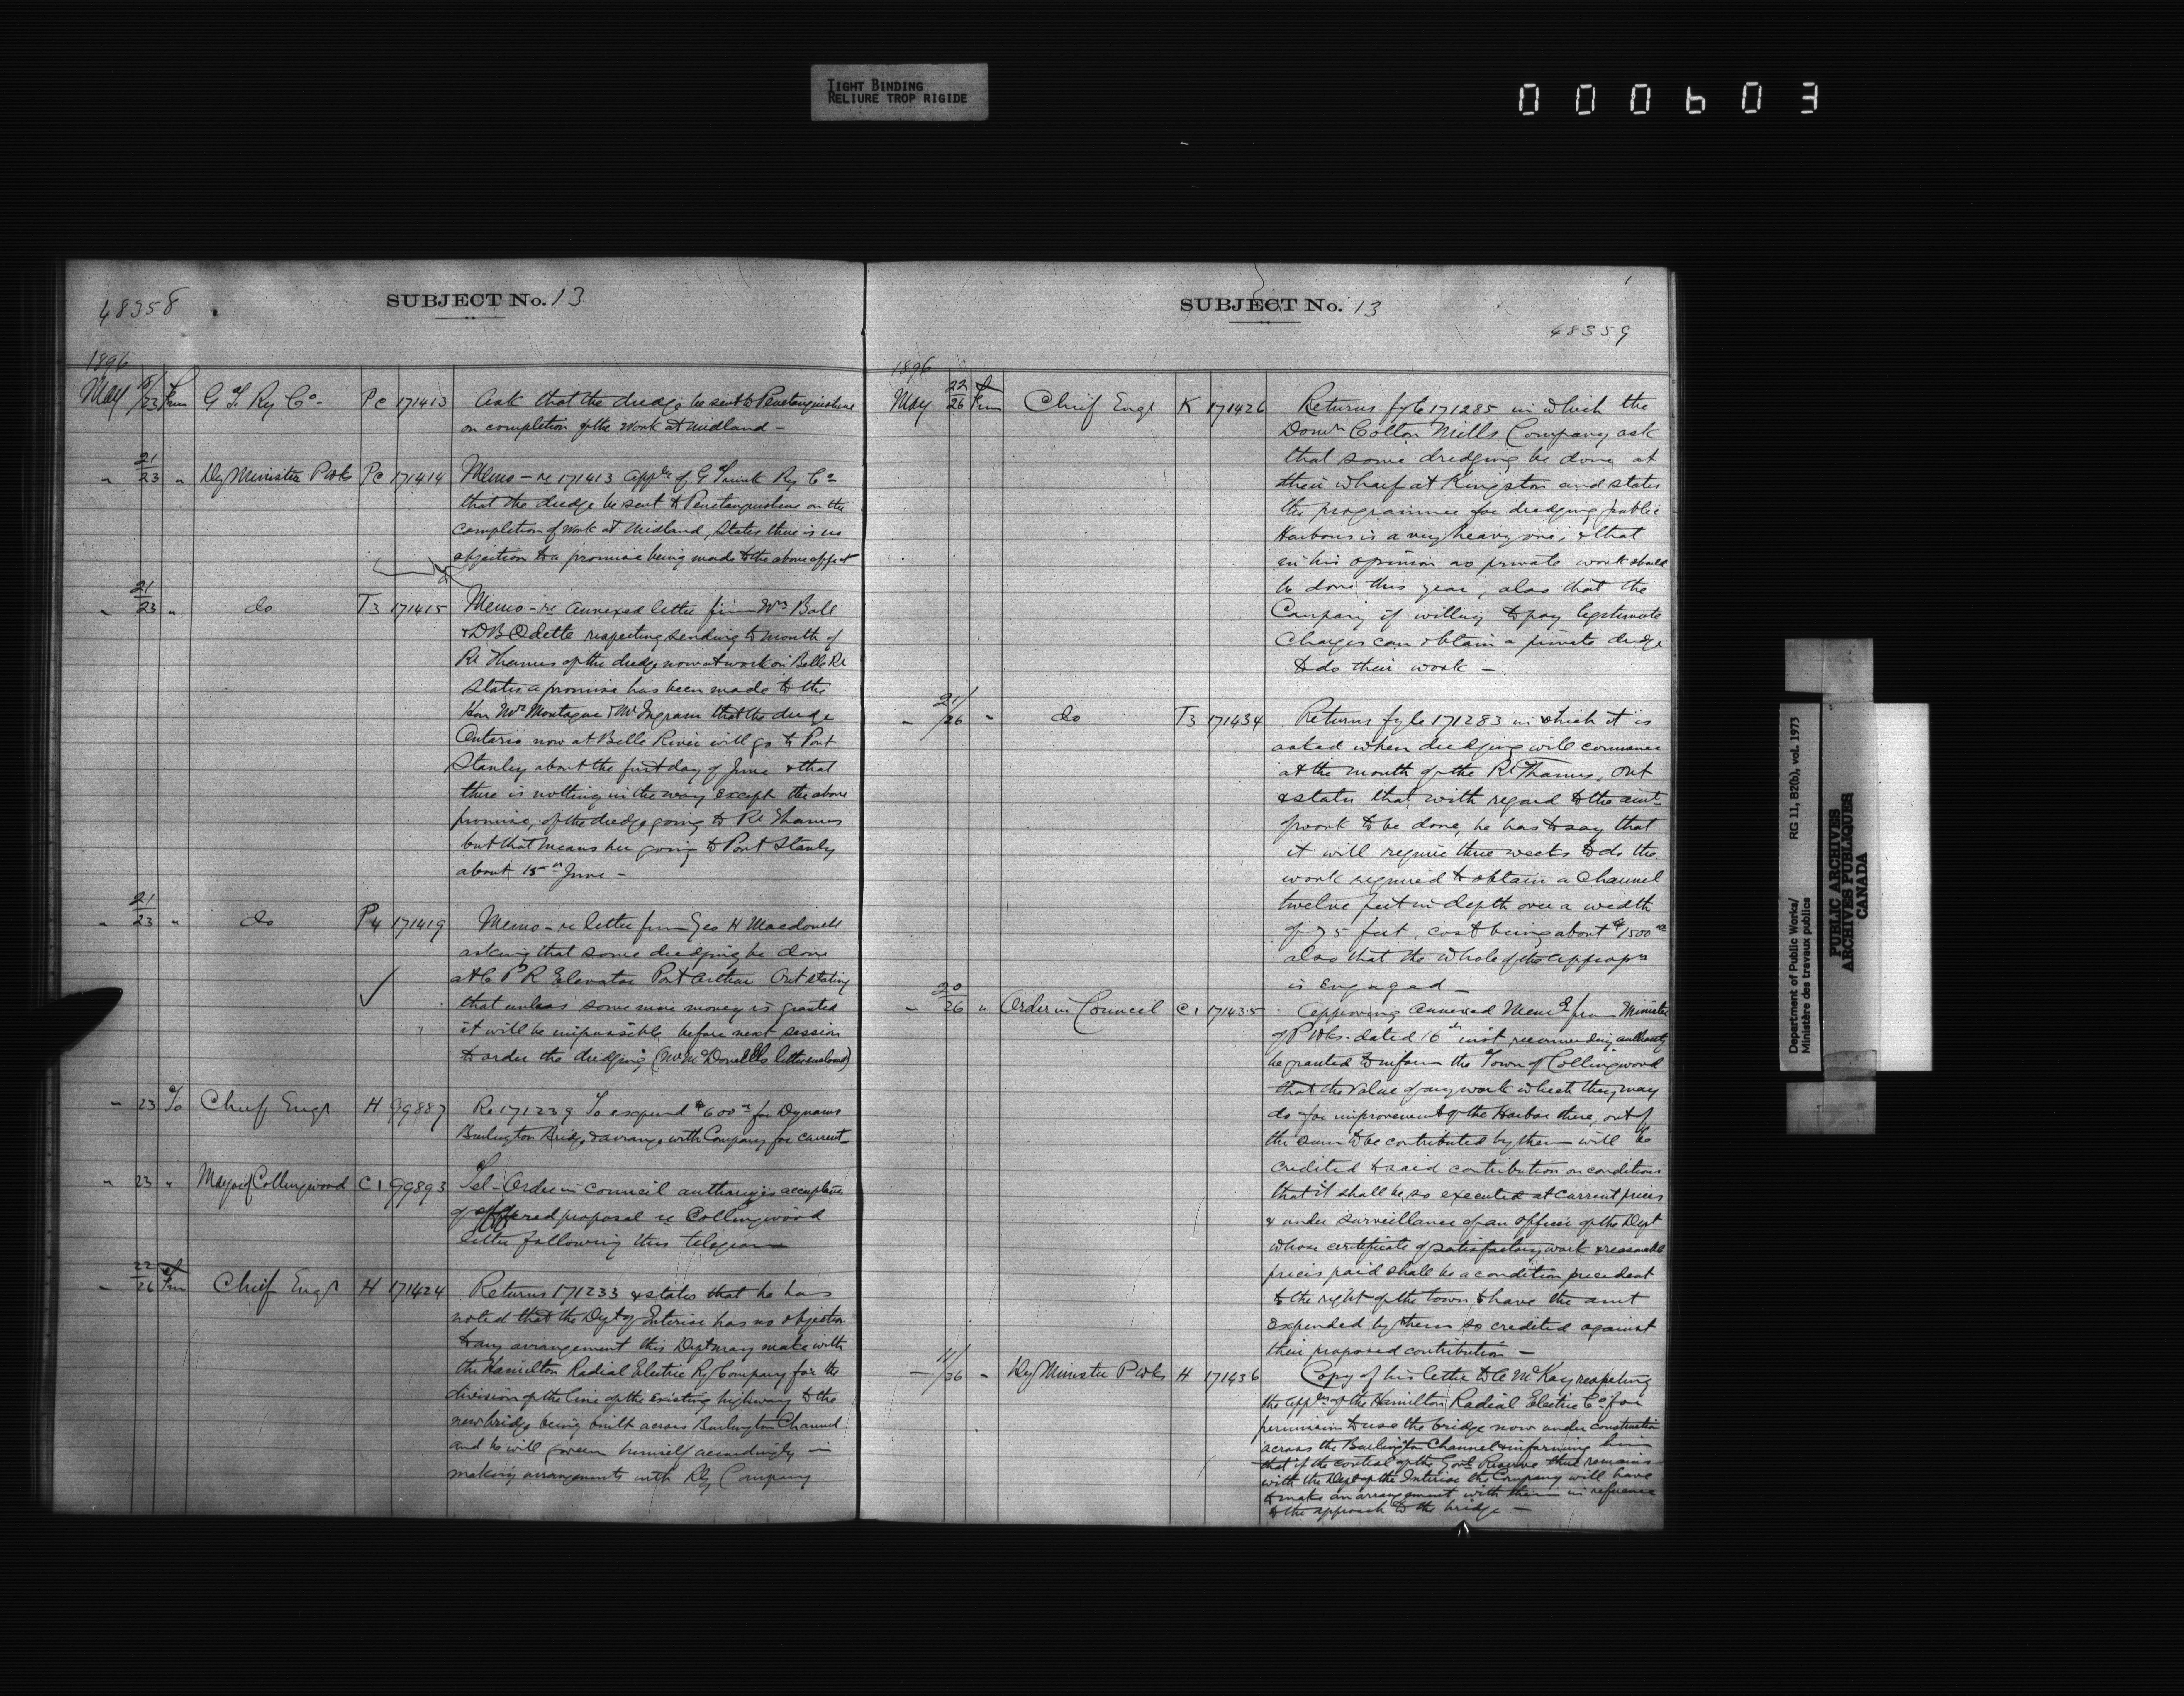 TIGHT BINDING
RELIURE TROP RIGIDE
000603
48358
SUBJECT No. 13
1896
May 18/23 From G T. Ry Co - Pe 171413 Ask that the dredge be sent to Penetanguishene
on completion of the work at Midland -
" 21/23 " Dy Minister P Wks Pe 171414 Memo - re 171413 appln of G Trunk Ry Co
that the dredge be sent to Penetanguishene on the
completion of work at Midland, states there is no
objection to a promise being made to the above effect
" 21/23 " do T3 171415 Memo - re annexed letter from Wm Ball
& D B Odette respecting sending to mouth of
Rr Thames of the dredge now at work in Belle Rr
states a promise has been made to the
Hon Mr Montague & Mr Ingram that the dredge
Ontario now at Belle River will go to Port
Stanley about the first day of June & that
there is nothing in the way except the above
promise, of the dredge going to Rr Thames
but that means her going to Port Stanley
about 15th June -
" 21/23 " do P4 171419 Memo - re letter from Geo H Macdonell
asking that some dredging be done
at C P R Elevator Port Arthur Ont stating
that unless some more money is granted
it will be impossible before next session
to order the dredging (Mr McDonells letter enclosed)
" 23 To Chief Engr H 99887 Re 171239 To expend $600 for Dynamo
Burlington Bridge & arrange with Company for current -
" 23 " Mayor of Collingwood C1 99893 Tel - Order in council authorizes acceptance
of offered proposal re Collingwood
letter following this telegram
" 22/26 From Chief Engr H 171424 Returns 171233 & states that he has
noted that the Dept of Interior has no objection
to any arrangement this Dept may make with
the Hamilton Radial Electric Ry Company for the
division of the line of the existing highway to the
new bridge being built across Burlington Channel
and he will govern himself accordingly in
making arrangements with Rly Company
SUBJECT No. 13
48359
1896
May 22/26 From Chief Engr K 171426 Returns fyle 171285 in which the
Domn Cotton Mills Company ask
that some dredging be done at
their wharf at Kingston and states
the programme for dredging public
Harbours is a very heavy one, & that
in his opinion no private work should
be done this year, also that the
Company if willing to pay legitimate
Charges can obtain a private dredge
to do their work -
" 21/26 " do T3 171434 Returns fyle 171283 in which it is
asked when dredging will commence
at the mouth of the Rr Thames, Ont
& states that with regard to the amt
of work to be done, he has to say that
it will require three weeks to do the
work required to obtain a Channel
twelve feet in depth over a width
of 75 feet, cost being about $1500
also that the whole of the appropn
is Engaged -
" 20/26 " Order in Council C1 171435 Approving annexed Memo from Minister
of P Wks. dated 16th inst, recommending authority
be granted to inform the Town of Collingwood
that the value of any work which they may
do for improvement of the Harbor there, out of
the sum to be contributed by them will be
credited to said contribution on conditions
that it shall be so executed at current prices
& under surveillance of an officer of the Dept
whose certificate of satisfactory work & reasonable
prices paid shall be a condition precedent
to the right of the town to have the amt
expended by them so credited against
their proposed contribution -
" 11/26 " Dy Minister P Wks H 171436 Copy of his letter to A McKay respecting
the appln of the Hamilton Radial Electric Co for
permission to use the bridge now under construction
across the Burlington Channel & informing him
that if the control of the Govt Reserve there remains
with the Dept of the Interior the Company will have
to make an arrangement with them in reference
to the approach to the bridge -
Department of Public Works/ RG 11, B2(b), vol. 1973
Ministère des travaux publics
PUBLIC ARCHIVES
ARCHIVES PUBLIQUES
CANADA